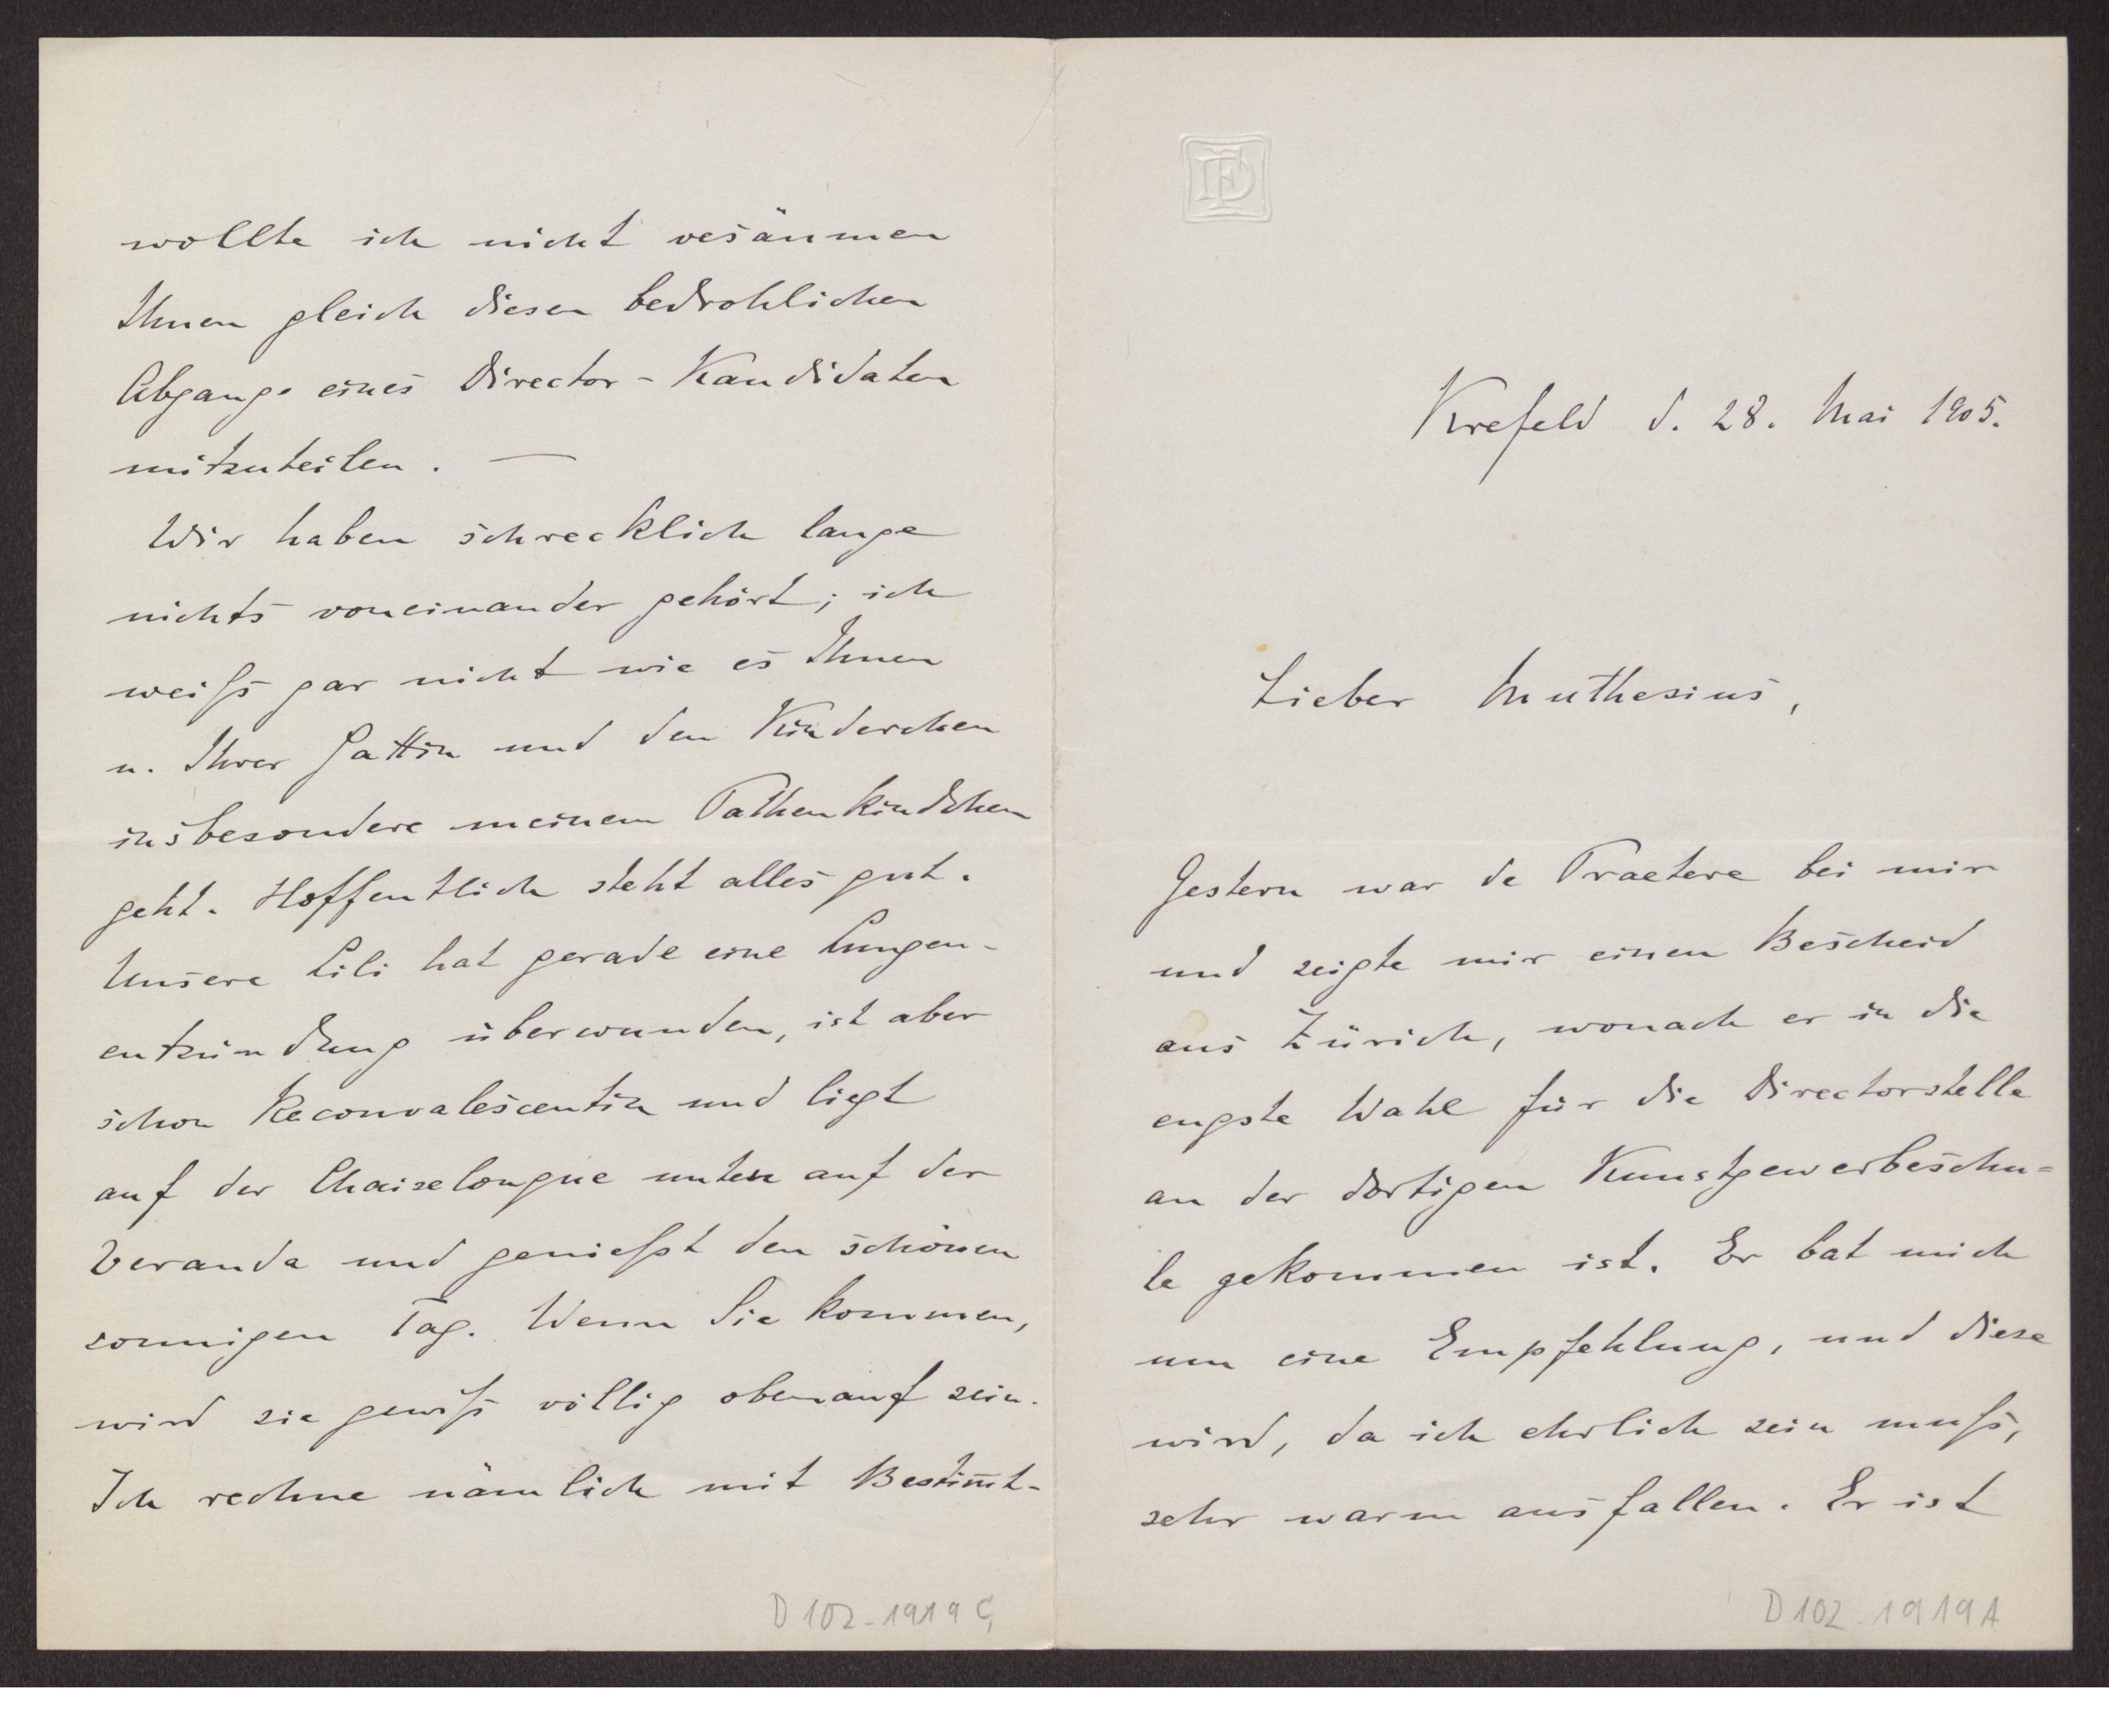 FD
Krefeld d. 28. Mai 1905.
Lieber Muthesius,
Gestern war de Praetere bei mir
und zeigte mir einen Bescheid
aus Zürich, wonach er in die
engste Wahl für die Directorstelle
an der dortigen Kunstgewerbeschu=
le gekommen ist. Er bat mich
um eine Empfehlung, und diese
wird, da ich ehrlich sein muſs,
sehr warm ausfallen. Er ist
D 102-1919 A
wollte ich nicht vesäumen
Ihnen gleich diesen bedrohlichen
Abgange eines Director-Kandidaten
mitzuteilen. —
Wir haben schrecklich lange
nichts voneinander gehört; ich
weiſs gar nicht wie es Ihnen
u. Ihrer Gattin und den Kinderchen
insbesondere meinem Pathenkindchen
geht. Hoffentlich steht alles gut.
Unsere Lili hat gerade eine Lungen-
entzündung überwunden, ist aber
schon Reconvalescentin und liegt
auf der Chaiselongue unten auf der
Veranda und genieſst den schönen
sonnigen Tag. Wenn Sie kommen,
wird sie gewiſs völlig obenauf sein.
Ich rechne nämlich mit Bestim̄t-
D 102-1919 C